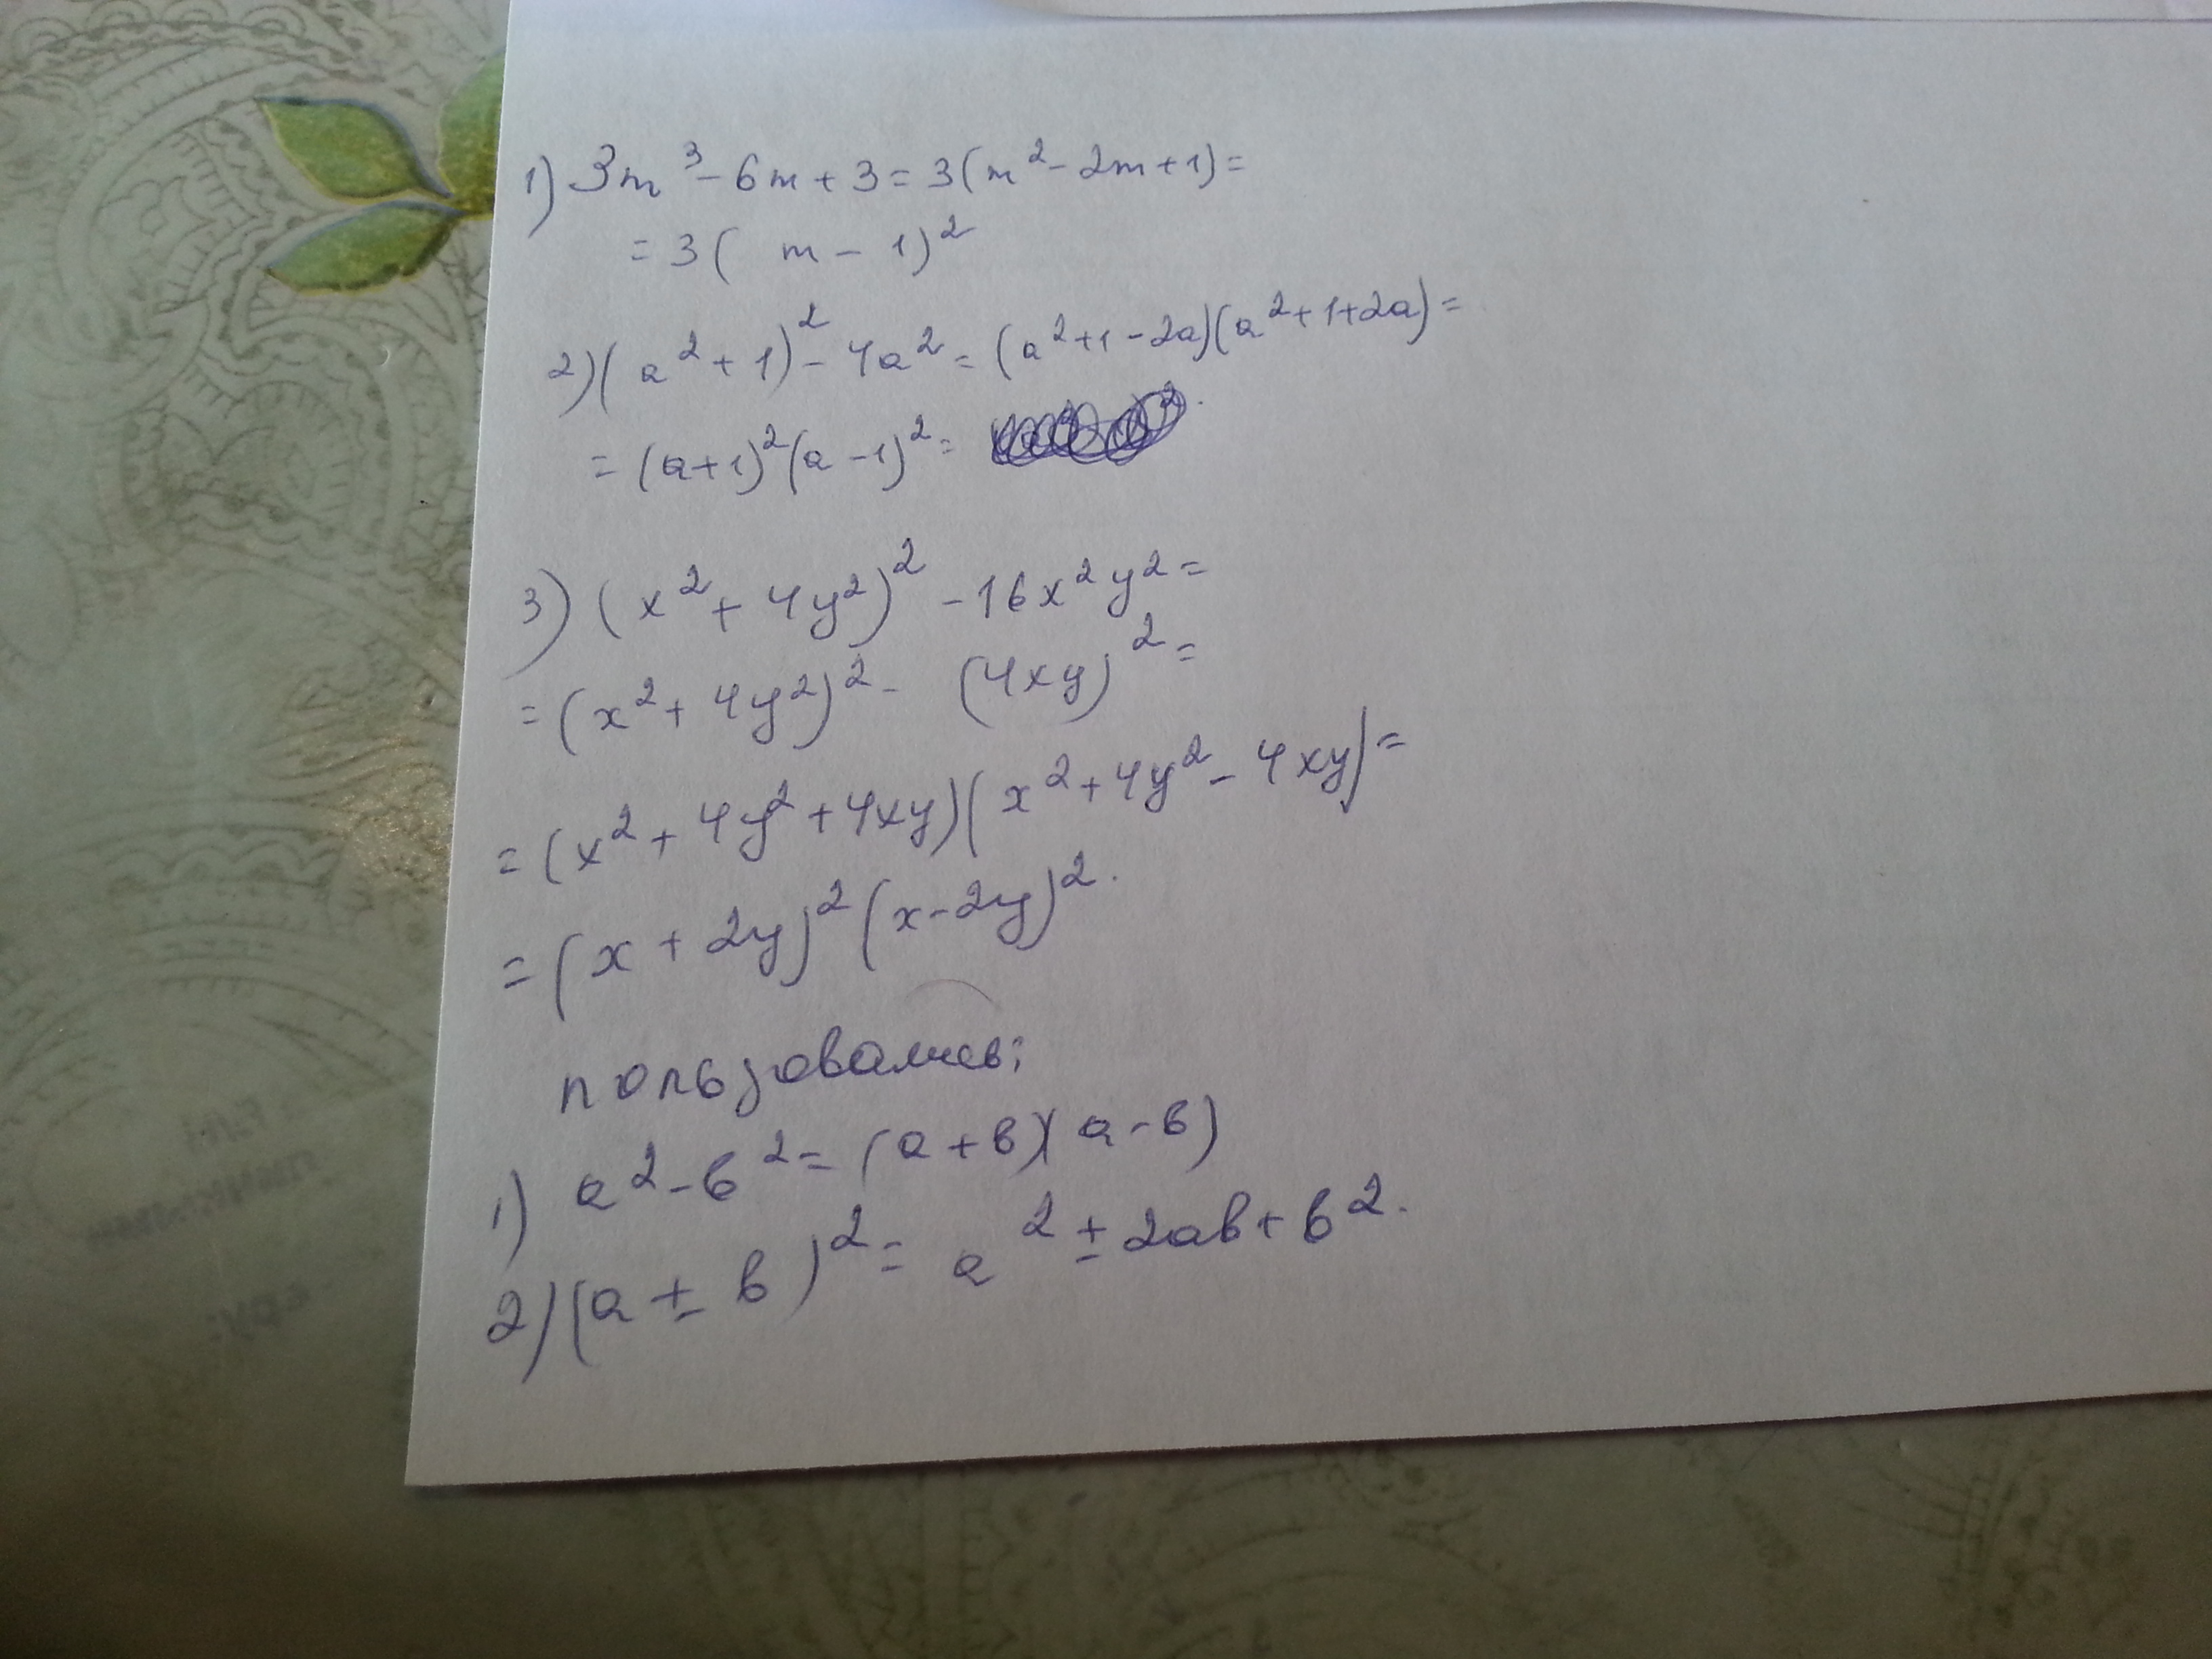 1) 3m³ - 6m + 3 = 3(m² - 2m + 1) =
= 3( m - 1)²
2) (a² + 1)² - 4a² = (a² + 1 - 2a)(a² + 1 + 2a) =
= (a + 1)² (a - 1)² =
3) (x² + 4y²)² - 16x²y² =
= (x² + 4y²)² - (4xy)² =
= (x² + 4y² + 4xy)(x² + 4y² - 4xy) =
= (x + 2y)² (x - 2y)².
пользовались:
1) a² - в² = (a + в)(a - в)
2) (a ± в)² = a² ± 2aв + в².